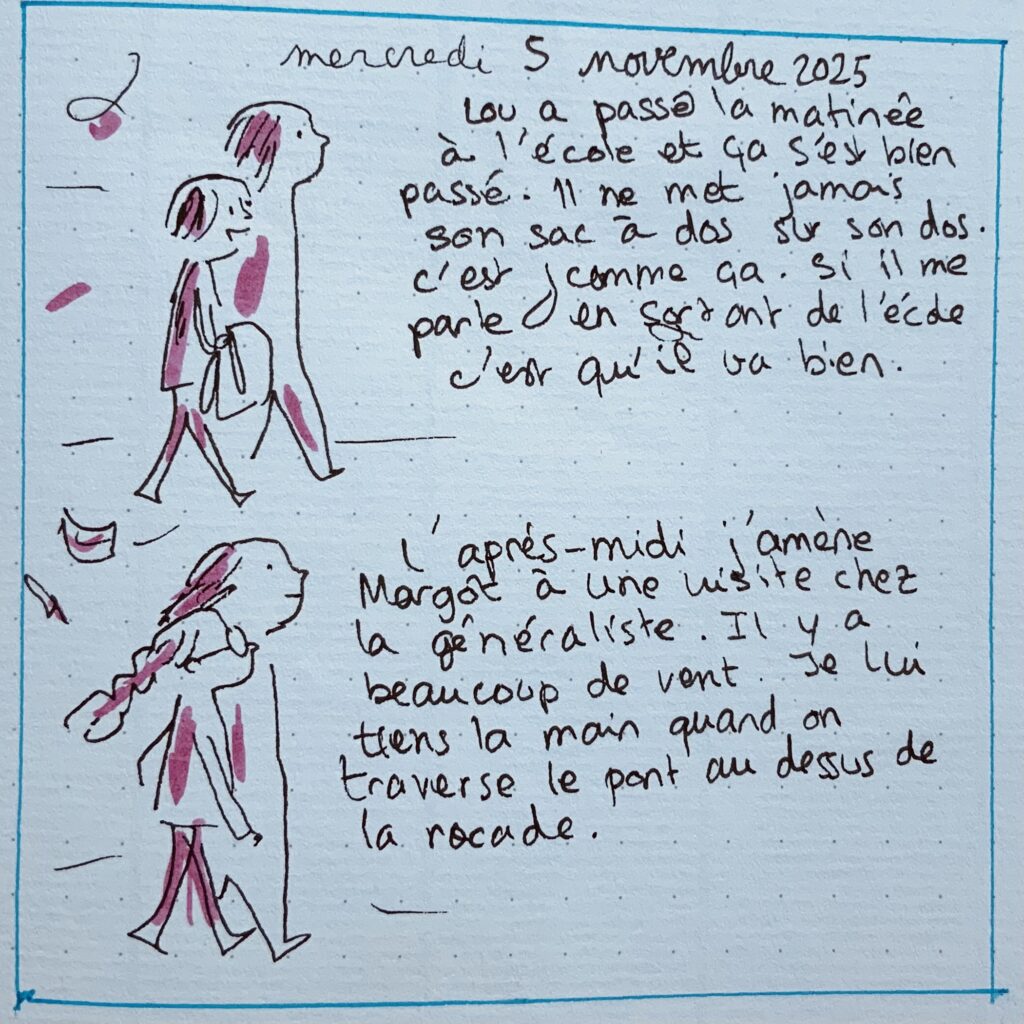 mercredi 5 novembre 2025
Lou a passé la matinée
à l'école et ça s'est bien
passé. Il ne met jamais
son sac à dos sur son dos.
c'est comme ça. Si il me
parle en sortant de l'école
c'est qu'il va bien.
l'après-midi j'amène
Margot à une visite chez
la généraliste. Il y a
beaucoup de vent. Je lui
tiens la main quand on
traverse le pont au dessus de
la rocade.